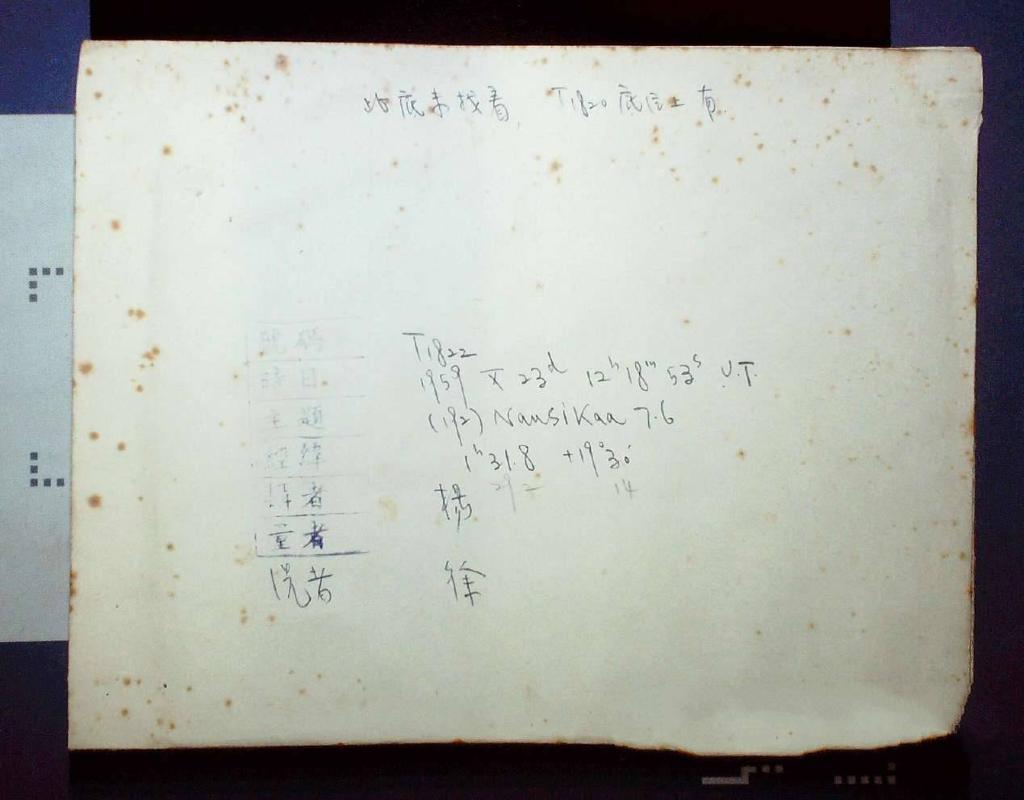 此底未找着, T1820底片上有
號碼 T1822
時日 1959 X 23d 12h 18m 53s U.T.
主題 (192) Nausikaa 7.6
經緯 1h 31.8 +19°30'
29 2 14
者 楊
量者
洗者 徐